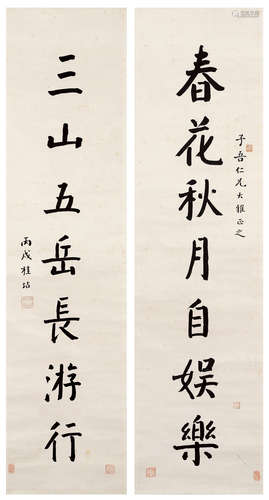 春花秋月自娱樂
子吾仁兄大雅正之
三山五岳長游行
丙戌桂坫